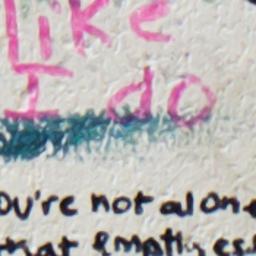 Like
I do
ou're not alone
that emptines